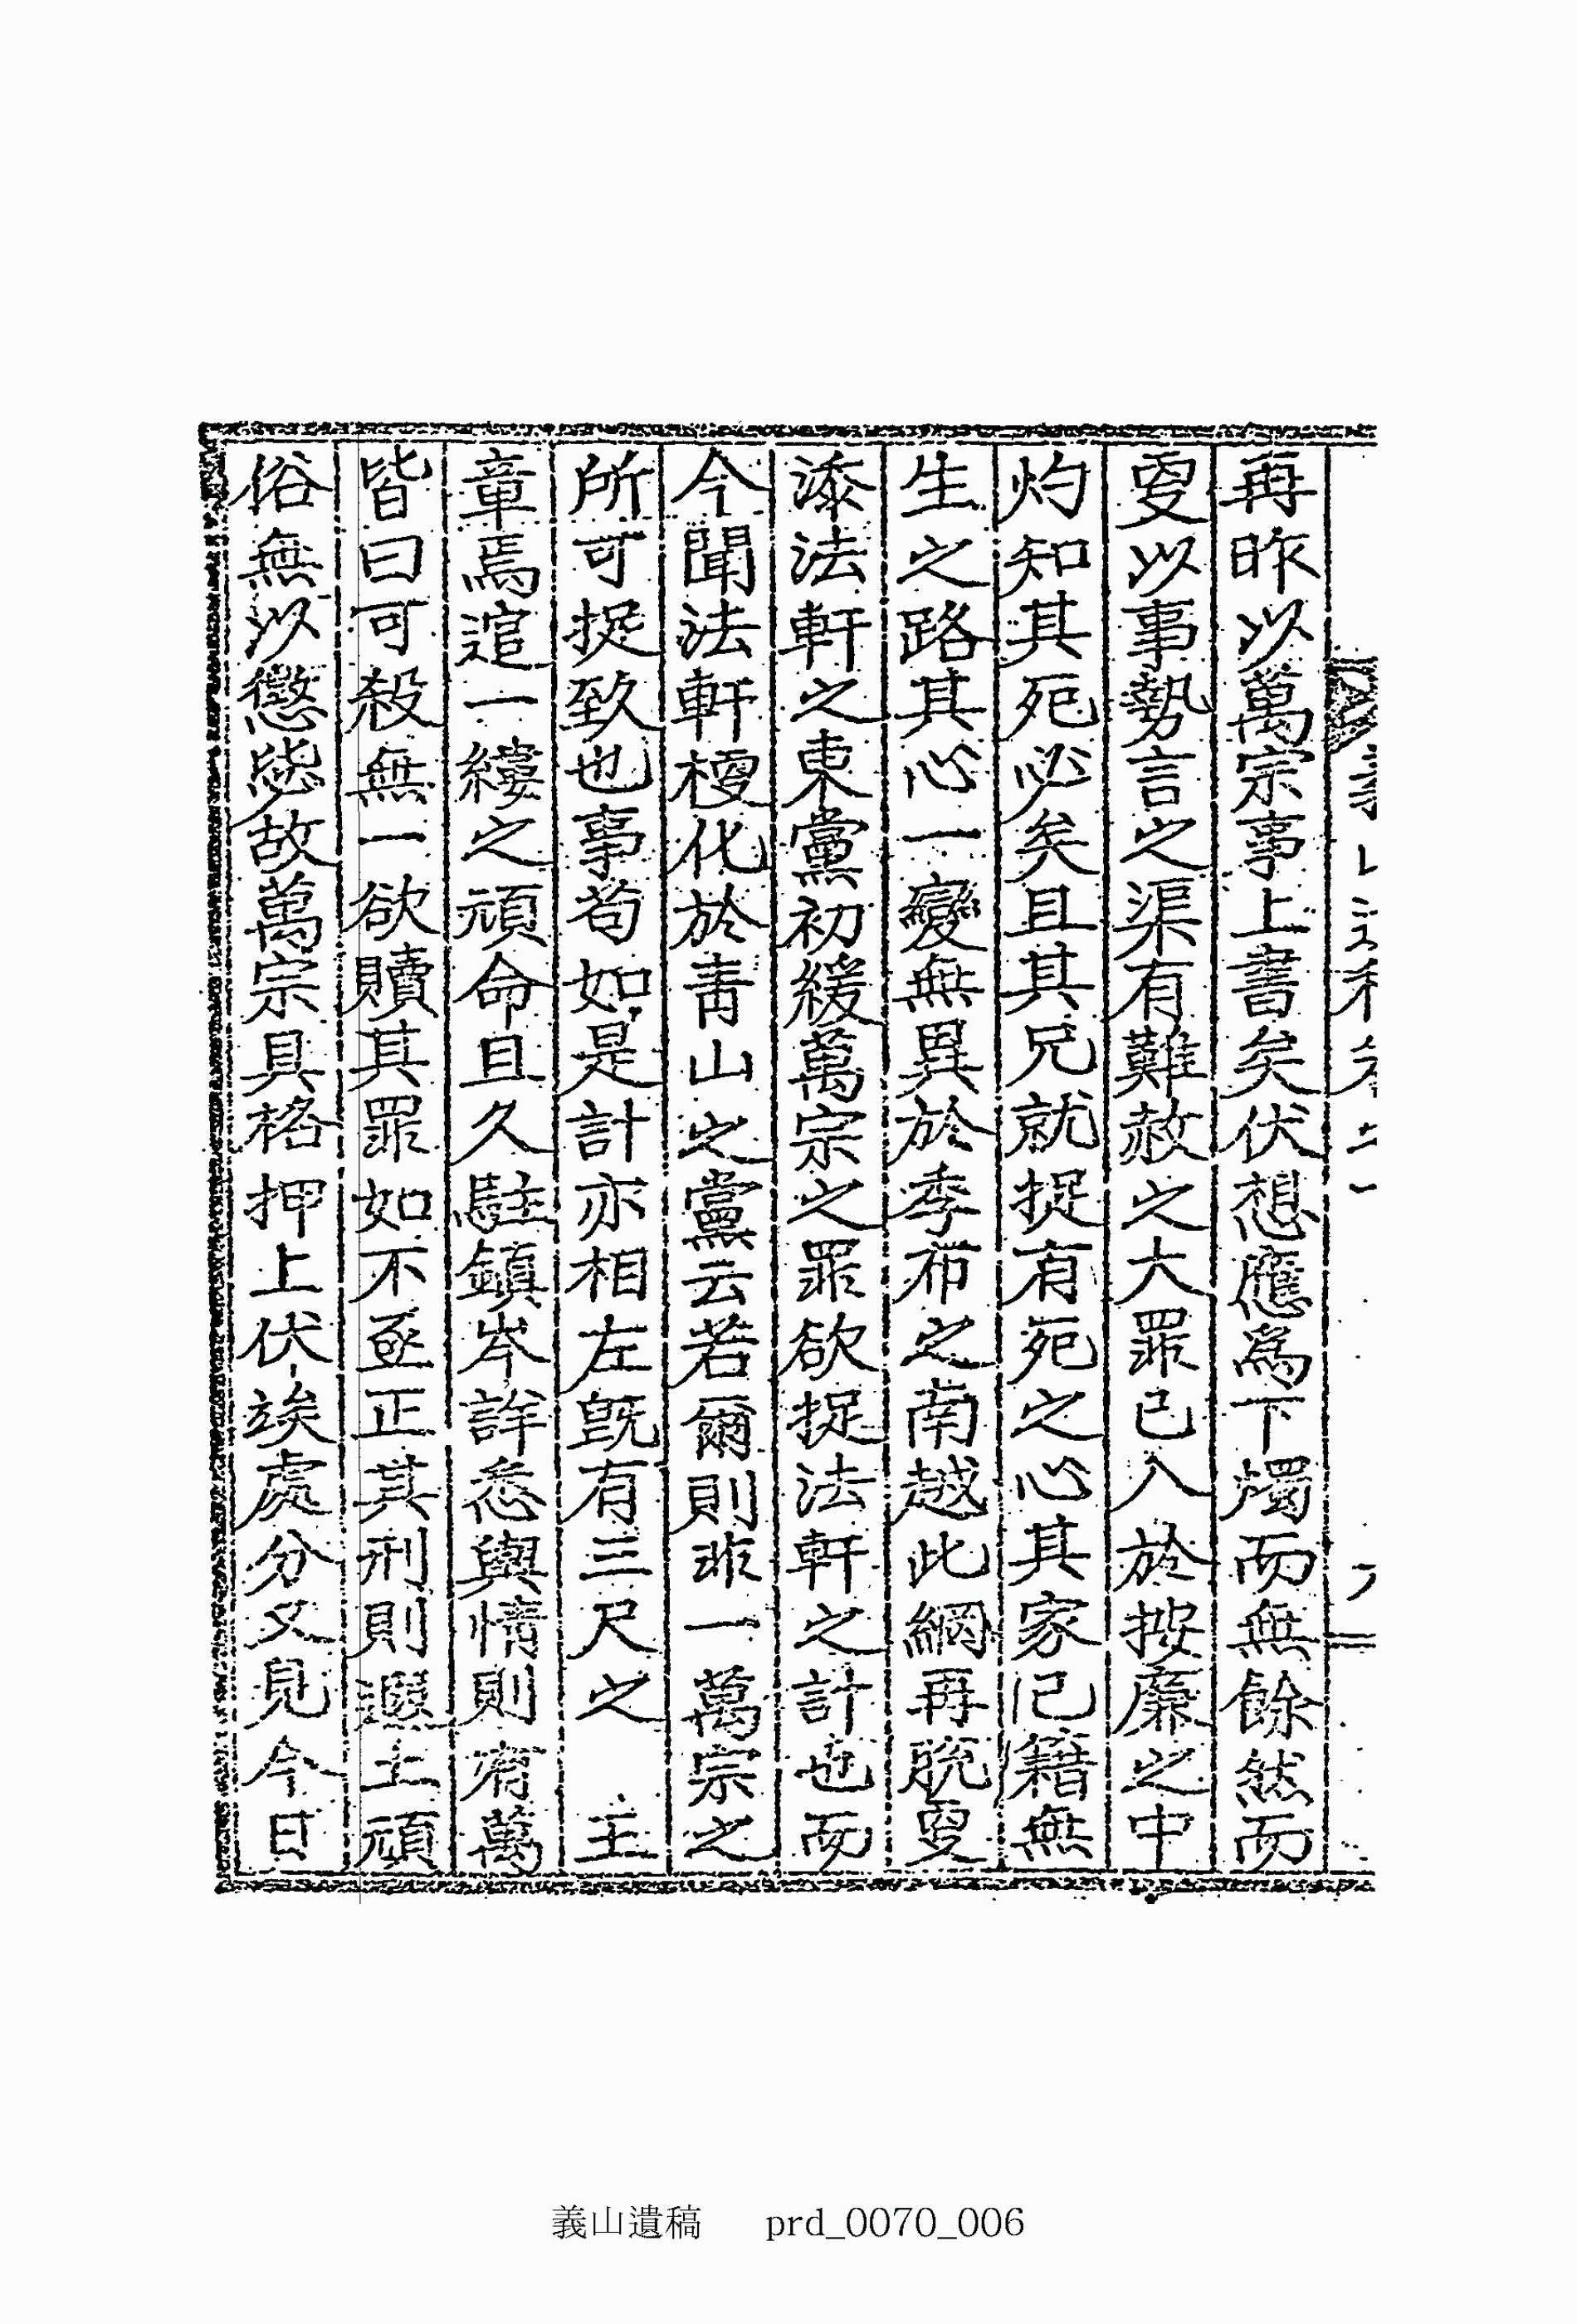 再昨以萬宗事上書矣伏想應爲下燭而無餘然而
更以事勢言之渠有難赦之大罪已入於按廉之中
灼知其死必矣且其兄就捉有死之心其家已籍無
生之路其心一變無異於季布之南越此網再脫更
添法軒之東黨初緩萬宗之罪欲捉法軒之計也而
今聞法軒梗化於靑山之黨云若爾則非一萬宗之
所可捉致也事苟如是計亦相左旣有三尺之 主
章焉逭一縷之頑命且久駐鎭岑詳悉輿情則宥萬
皆曰可殺無一欲贖其罪如不亟正其刑則遐土頑
俗無以懲毖故萬宗具格押上伏竢處分又見今日
義山遺稿 prd_0070_006